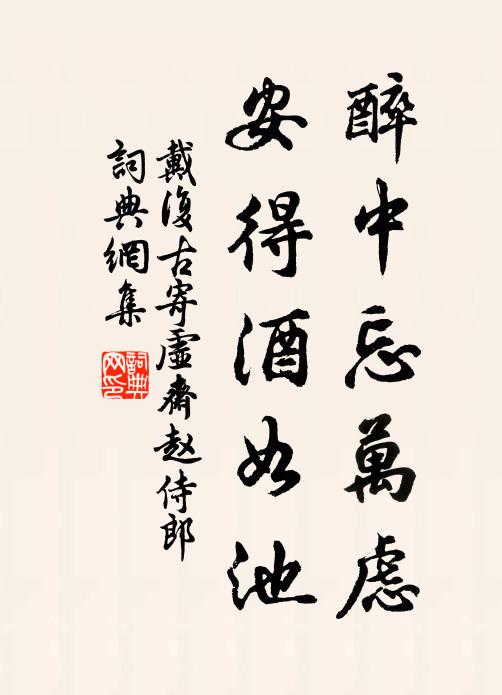 醉中忘萬慮
安得酒如池
戴復古寄虛齋赵侍郎
詞典網集
詞典網印